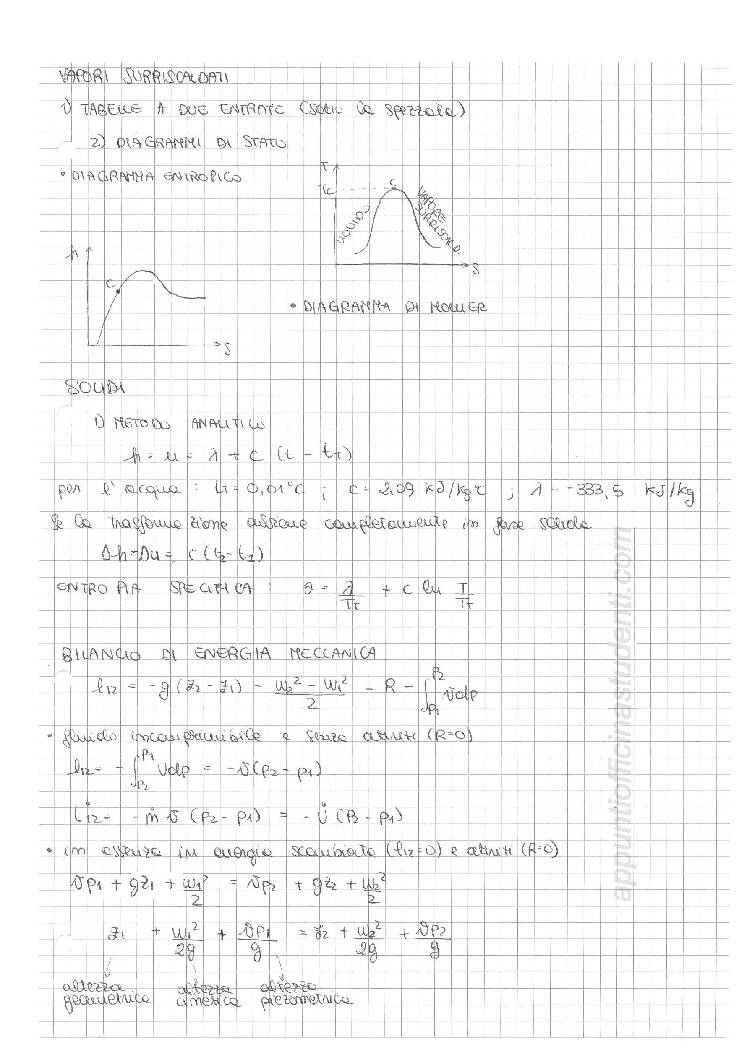 VAPORI SURRISCALDATI
1) TABELLE A DUE ENTRATE (sotto la spezzata)
2) DIAGRAMMI DI STATO
• DIAGRAMMA ENTROPICO
T
Tc
C
LIQUIDO
VAPORE SURRISCALD.
s
h
C
s
• DIAGRAMMA DI MOLLIER
SOLIDI
1) METODO ANALITICO
h = u = λ + c (t - tT)
per l'acqua : tT = 0,01°C ; c = 2,09 kJ/kg°C ; λ = -333,5 kJ/kg
Se la trasformazione avviene completamente in fase solida
Δh = Δu = c (t2 - t1)
ENTROPIA SPECIFICA : s = λ/TT + c ln T/TT
BILANCIO DI ENERGIA MECCANICA
l12 = -g (z2 - z1) - (w2² - w1²)/2 - R - ∫p1^p2 vdp
• fluido incomprimibile e senza attriti (R=0)
l12 = - ∫p2^p1 Vdp = -v(p2 - p1)
L̇12 = - ṁ v (p2 - p1) = - V̇ (p2 - p1)
• in assenza in energia scambiata (l12=0) e attriti (R=0)
vp1 + gz1 + w1²/2 = vp2 + gz2 + w2²/2
z1 + w1²/2g + vp1/g = z2 + w2²/2g + vp2/g
altezza geometrica altezza cinetica altezza piezometrica
appuntiofficinastudenti.com